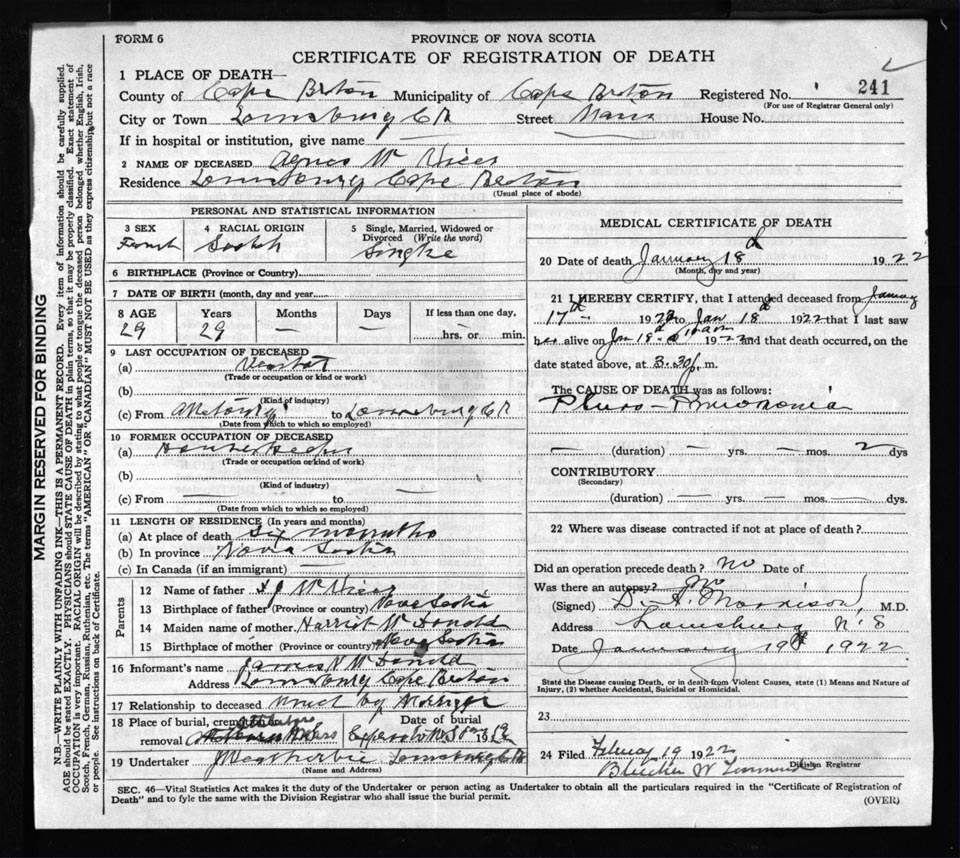 FORM 6
PROVINCE OF NOVA SCOTIA
CERTIFICATE OF REGISTRATION OF DEATH
241
1 PLACE OF DEATH—
County of Cape Breton Municipality of Cape Breton Registered No.
(For use of Registrar General only)
City or Town Louisburg C B Street Main House No.
If in hospital or institution, give name
2 NAME OF DECEASED Agnes Mc
Residence Louisburg Cape Breton
(Usual place of abode)
PERSONAL AND STATISTICAL INFORMATION
3 SEX 4 RACIAL ORIGIN 5 Single, Married, Widowed or Divorced (Write the word)
Scotch Single
6 BIRTHPLACE (Province or Country)
7 DATE OF BIRTH (month, day and year)
8 AGE Years Months Days If less than one day,
29 29 — — hrs. or min.
9 LAST OCCUPATION OF DECEASED
(a)
(Trade or occupation or kind or work)
(b)
(Kind of industry)
(c) From to Louisburg C B
(Date from which to which so employed)
10 FORMER OCCUPATION OF DECEASED
(a) Housekeeper
(Trade or occupation or kind of work)
(b)
(Kind of industry)
(c) From — to —
(Date from which to which so employed)
11 LENGTH OF RESIDENCE (In years and months)
(a) At place of death Six months
(b) In province Nova Scotia
(c) In Canada (if an immigrant) —
Parents
12 Name of father
13 Birthplace of father (Province or country) Nova Scotia
14 Maiden name of mother Harriet McDonald
15 Birthplace of mother (Province or country) Nova Scotia
16 Informant's name James McDonald
Address Louisburg Cape Breton
17 Relationship to deceased Uncle by Marriage
18 Place of burial, cremation or removal
Date of burial
19 Undertaker Louisburg C B
(Name and Address)
MEDICAL CERTIFICATE OF DEATH
20 Date of death January 18 1922
(Month, day and year)
21 I HEREBY CERTIFY, that I attended deceased from January
17th 1922 to Jan 18 1922 that I last saw
her alive on Jan 18 1922 and that death occurred, on the
date stated above, at 3.30 p. m.
The CAUSE OF DEATH was as follows:
Pleuro-Pneumonia
— (duration) — yrs. — mos. 2 dys
CONTRIBUTORY
(Secondary)
(duration) — yrs. — mos. — dys.
22 Where was disease contracted if not at place of death?
Did an operation precede death? No Date of
Was there an autopsy? No
(Signed) D. A. Morrison, M.D.
Address Louisburg N. S
Date January 19th 1922
State the Disease causing Death, or in death from Violent Causes, state (1) Means and Nature of
Injury, (2) whether Accidental, Suicidal or Homicidal.
23
24 Filed 19 1922
Division Registrar
SEC. 46—Vital Statistics Act makes it the duty of the Undertaker or person acting as Undertaker to obtain all the particulars required in the "Certificate of Registration of
Death" and to fyle the same with the Division Registrar who shall issue the burial permit.
(OVER)
MARGIN RESERVED FOR BINDING
N.B.—WRITE PLAINLY WITH UNFADING INK—THIS IS A PERMANENT RECORD. Every item of information should be carefully supplied.
AGE should be stated EXACTLY. PHYSICIANS should STATE CAUSE OF DEATH in plain terms, so that it may be properly classified. Exact statement of
OCCUPATION is very important. RACIAL ORIGIN will be described by stating to what people or tongue the deceased person belonged whether English, Irish,
Scotch, French, German, Russian, Ruthenian, etc. The terms "AMERICAN" OR "CANADIAN" MUST NOT BE USED as they express citizenship but not a race
or people. See instructions on back of Certificate.